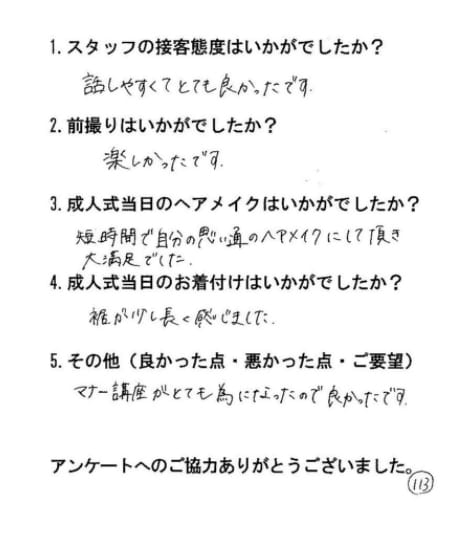 1. スタッフの接客態度はいかがでしたか？
話しやすくてとても良かったです.
2. 前撮りはいかがでしたか？
楽しかったです.
3. 成人式当日のヘアメイクはいかがでしたか？
短時間で自分の思い通のヘアメイクにして頂き
大満足でした.
4. 成人式当日のお着付けはいかがでしたか？
裾が少し長く感じました.
5. その他（良かった点・悪かった点・ご要望）
マナー講座がとても為になったので良かったです.
アンケートへのご協力ありがとうございました。
113